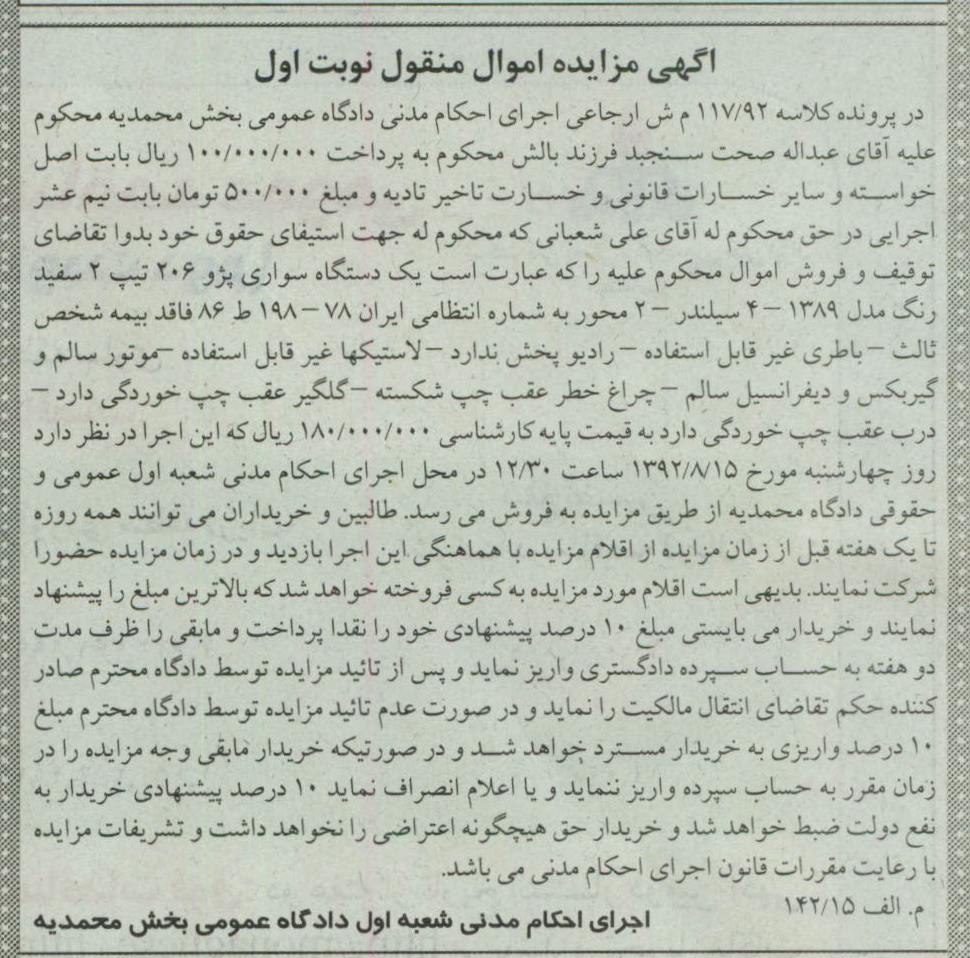 اگهی مزایده اموال منقول نوبت اول
در پرونده کلاسه ۱۱۷/۹۲ م ش ارجاعی اجرای احکام مدنی دادگاه عمومی بخش محمدیه محکوم
علیه آقای عبداله صحت سنجبد فرزند بالش محکوم به پرداخت ۱۰۰/۰۰۰/۰۰۰ ریال بابت اصل
خواسته و سایر خسارات قانونی و خسارت تاخیر تادیه و مبلغ ۵۰۰/۰۰۰ تومان بابت نیم عشر
اجرایی در حق محکوم له آقای علی شعبانی که محکوم له جهت استیفای حقوق خود بدوا تقاضای
توقیف و فروش اموال محکوم علیه را که عبارت است یک دستگاه سواری پژو ۲۰۶ تیپ ۲ سفید
رنگ مدل ۱۳۸۹ – ۴ سیلندر – ۲ محور به شماره انتظامی ایران ۷۸ – ۱۹۸ ط ۸۶ فاقد بیمه شخص
ثالث – باطری غیر قابل استفاده – رادیو پخش ندارد – لاستیکها غیر قابل استفاده –موتور سالم و
گیربکس و دیفرانسیل سالم – چراغ خطر عقب چپ شکسته –گلگیر عقب چپ خوردگی دارد –
درب عقب چپ خوردگی دارد به قیمت پایه کارشناسی ۱۸۰/۰۰۰/۰۰۰ ریال که این اجرا در نظر دارد
روز چهارشنبه مورخ ۱۳۹۲/۸/۱۵ ساعت ۱۲/۳۰ در محل اجرای احکام مدنی شعبه اول عمومی و
حقوقی دادگاه محمدیه از طریق مزایده به فروش می رسد. طالبین و خریداران می توانند همه روزه
تا یک هفته قبل از زمان مزایده از اقلام مزایده با هماهنگی این اجرا بازدید و در زمان مزایده حضورا
شرکت نمایند. بدیهی است اقلام مورد مزایده به کسی فروخته خواهد شد که بالاترین مبلغ را پیشنهاد
نمایند و خریدار می بایستی مبلغ ۱۰ درصد پیشنهادی خود را نقدا پرداخت و مابقی را ظرف مدت
دو هفته به حساب سپرده دادگستری واریز نماید و پس از تائید مزایده توسط دادگاه محترم صادر
کننده حکم تقاضای انتقال مالکیت را نماید و در صورت عدم تائید مزایده توسط دادگاه محترم مبلغ
۱۰ درصد واریزی به خریدار مسترد خواهد شد و در صورتیکه خریدار مابقی وجه مزایده را در
زمان مقرر به حساب سپرده واریز ننماید و یا اعلام انصراف نماید ۱۰ درصد پیشنهادی خریدار به
نفع دولت ضبط خواهد شد و خریدار حق هیچگونه اعتراضی را نخواهد داشت و تشریفات مزایده
با رعایت مقررات قانون اجرای احکام مدنی می باشد.
م. الف ۱۴۲/۱۵
اجرای احکام مدنی شعبه اول دادگاه عمومی بخش محمدیه